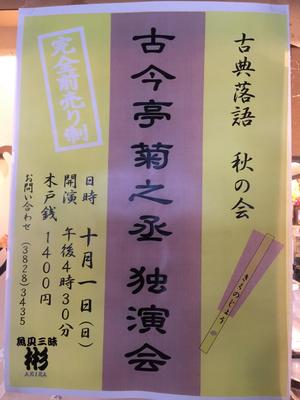 古典落語 秋の会
きくのじょう
古今亭菊之丞 独演会
完全前売り制
日時 十月一日(日)
開演 午後4時30分
木戸銭 1400円
お問い合わせ (3828)3435
魚貝三昧
彬
AKIRA